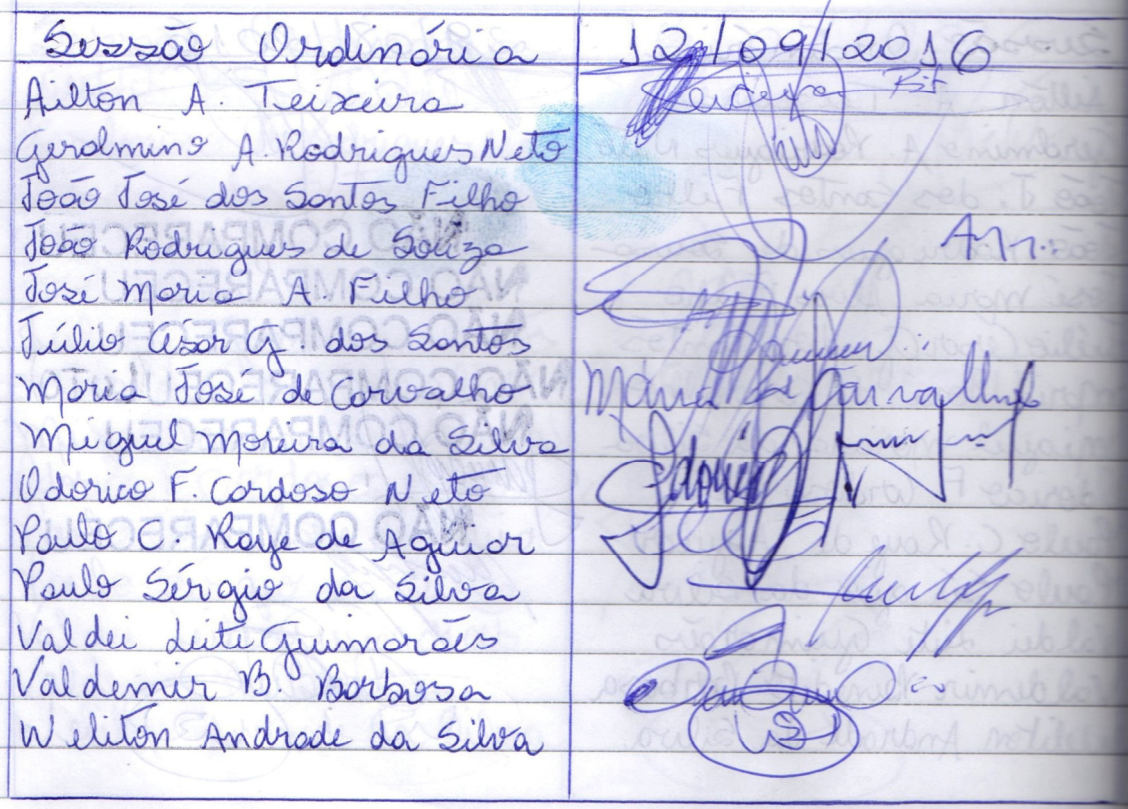 Sessão Ordinária 12/09/2016
Ailton A. Teixeira
Gerolmino A. Rodrigues Neto
João José dos Santos Filho
João Rodrigues de Souza
José Maria A. Filho
Júlio César G. dos Santos
Maria José de Carvalho Maria José Carvalho
Miguel Moreira da Silva
Odorico F. Cardoso Neto
Paulo C. Raye de Aguiar
Paulo Sérgio da Silva
Valdei Leite Guimarães
Valdemir B. Barbosa
Weliton Andrade da Silva